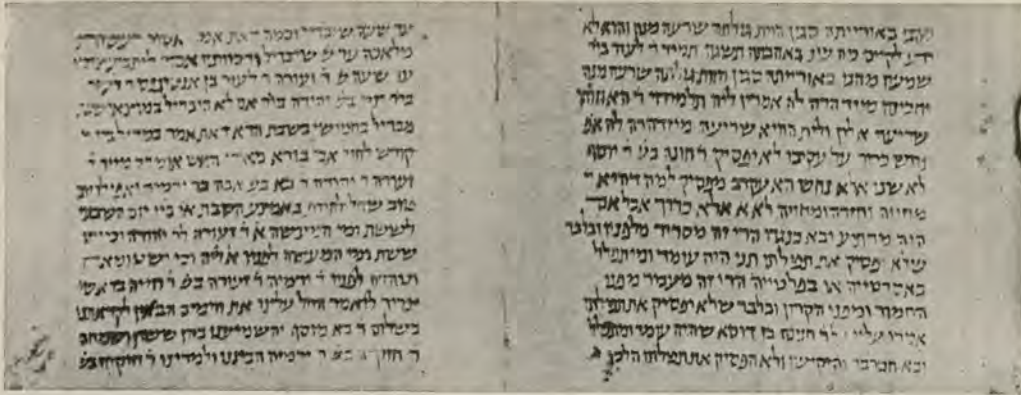 באורייתה סגין הוות גולתה שרעה מניה והוא לא
ידע לקיים מה שנ באהבתה תשגה תמיד ר לעזר ביר
שמעון מהגי באורייתה סגין והות גולתה שרעה מניה
אמרין ליה תלמידוי ר
שריעה אילין ולית ההיא שריעה מיזדהרה לה אפ
נחש כרוך על עקיבו לא יפסיק ר חונה בש ר יוסף
לא שנו אלא נחש הא עקרב מפסיק למה דהיא
מחייה וחזרה ומחייה לא א אלא כרוך אבל אם
היה מרתיע ובא כנגדו הרי זה מסתיר מלפניו ובלבד
שלא יפסיק את תפילתו תני היה עומד ומיתפלל
באסרטייה או בפלטייה הרי זה מעביר מפני
החמור ומפני הקרון ובלבד שלא יפסיק את תפילתו
אמרו עליו ר חנינה בן דוסא שהיה עומד ומתפלל
ובא חברבר והיכישו ולא הפסיק את תפלתו הלכו
עד שעה שיבדיל וכמה דאת אמ אסור לעשות
מלאכה עד ש שיבדיל ודכוותה
ר זעורה ר לעזר בן אנטיגנס ר
ביר ינאי בש יהודה ביר אם לא הבדיל במוצאי שבת
מבדיל בחמישי בשבת הדא דאת אמר
קודש לחול אבל בורא מאורי האש אומרה מייד ר
זעורה ר יהודה ר בא בש אבה בר ירמיה ואפילו יום
טוב שחל להיות באמצע השבת יום השביעי
לששת ימי המעשה א ר זעורה לר יהודה וכי יש
ששת ימי המעשה לפניו א ליה וכי יש טומאה
וטהרה לפניו ר ירמיה ר זעורה בש ר חייה בר אשי
צריך לומר החל עלינו את הימים הבאין לקראתנו
בשלום ר בא מוסף והשמיענו בהן ששון ושמחה
ר חזקיה בש ר ירמיה הביננו ולמדינו ר חזקיה בש